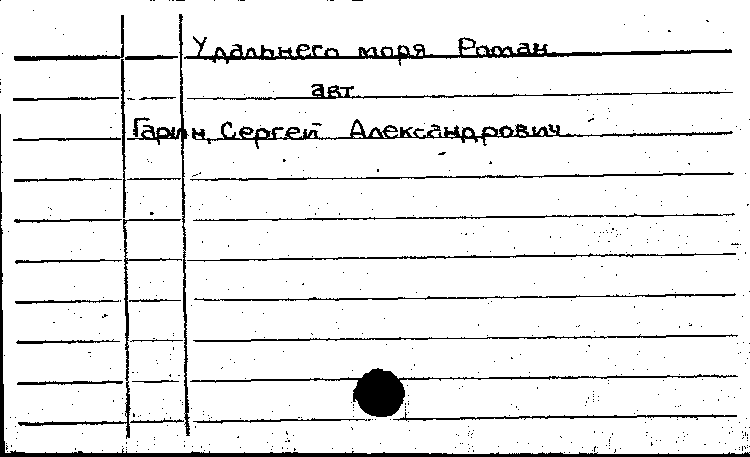 У дальнего моря Роман
авт
Гарин, Сергей Александрович